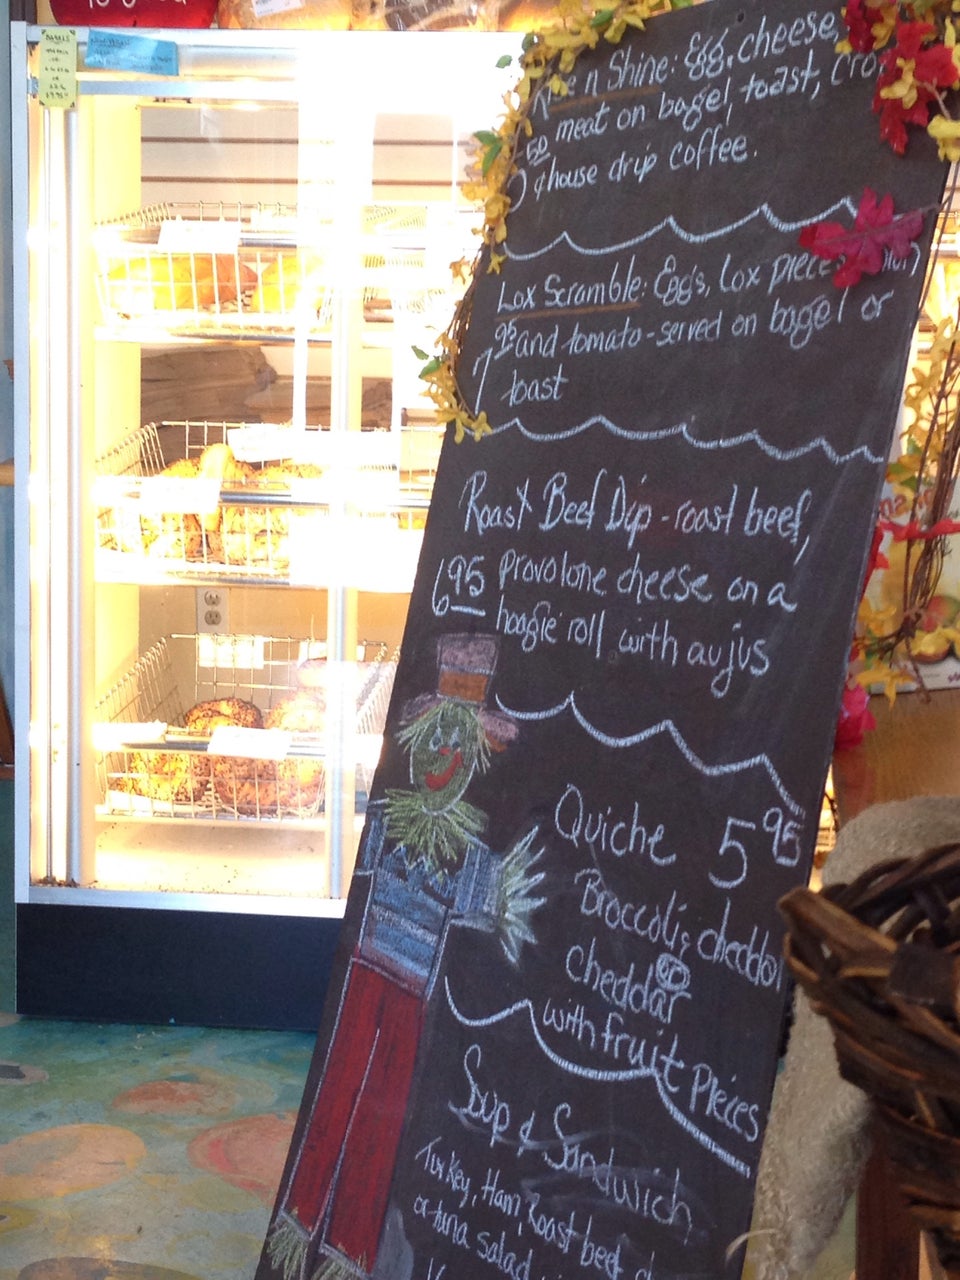 BAGELS
n Shine: Egg, cheese,
50 meat on bagel, toast, cro
¢ house drip coffee.
Lox Scramble: Eggs, lox pieces
7 95 and tomato-served on bagel or
toast
Roast Beef Dip - roast beef,
6 95 provolone cheese on a
hoagie roll with aujus
Quiche 5 95
Broccoli & cheddar
cheddar
with fruit pieces
Soup & Sandwich
Turkey, Ham, Roast beef
or tuna salad